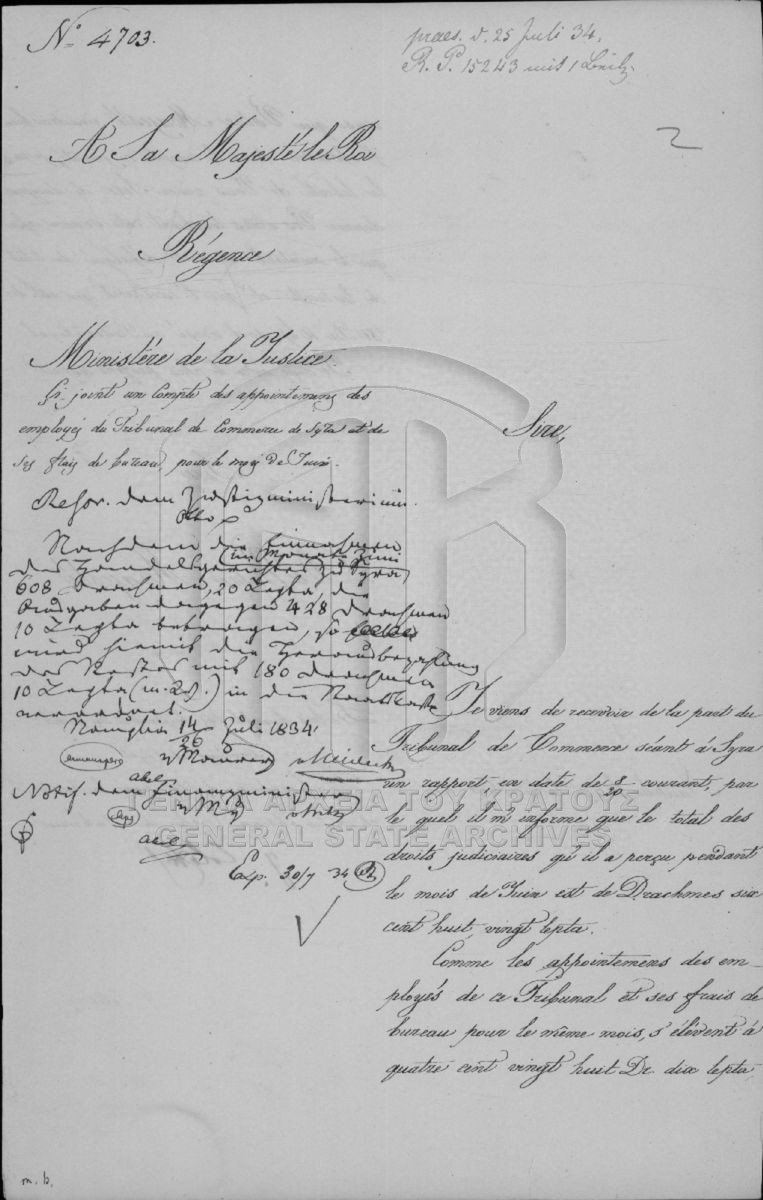 N.º 4703.
praes. d. 25 Juli 34.
R. P. 15243 mit 1 Beil.
2
A Sa Majesté le Roi
Régence
Ministère de la Justice.
Ci joint un Compte des appointemens des
employés du Tribunal de Commerce de Syra et de
ses frais de bureau, pour le mois de Juin.
Sire,
Resor. dem Justizministerium.
Otto
Nachdem die Einnahmen
im Monate Juni
des Handelsgerichtes zu Syra
608 Drachmen, 20 Lepta, die
Ausgaben dagegen 428 Drachmen
10 Lepta betragen, so
wird hiemit die Herausbezahlung
des Restes mit 180 Drachmen
10 Lepta (m. Ws.) in die Staatskasse
verordnet.
Nauplia 14/26 Juli 1834
v Maurer v Heideck
Notif. dem Finanzminister
Exp. 30/7 34
Je viens de recevoir de la part du
Tribunal de Commerce séant à Syra
un rapport, en date de 8/20 courant, par
le quel il m'informe que le total des
droits judiciaires qu'il a perçu pendant
le mois de Juin est de Drachmes six
cent huit, vingt lepta.
Comme les appointemens des em-
ployés de ce Tribunal et ses frais de
bureau pour le même mois, s'élèvent à
quatre cent vingt huit Dr. dix lepta
ΓΕΝΙΚΑ ΑΡΧΕΙΑ ΤΟΥ ΚΡΑΤΟΥΣ
GENERAL STATE ARCHIVES
m. b.